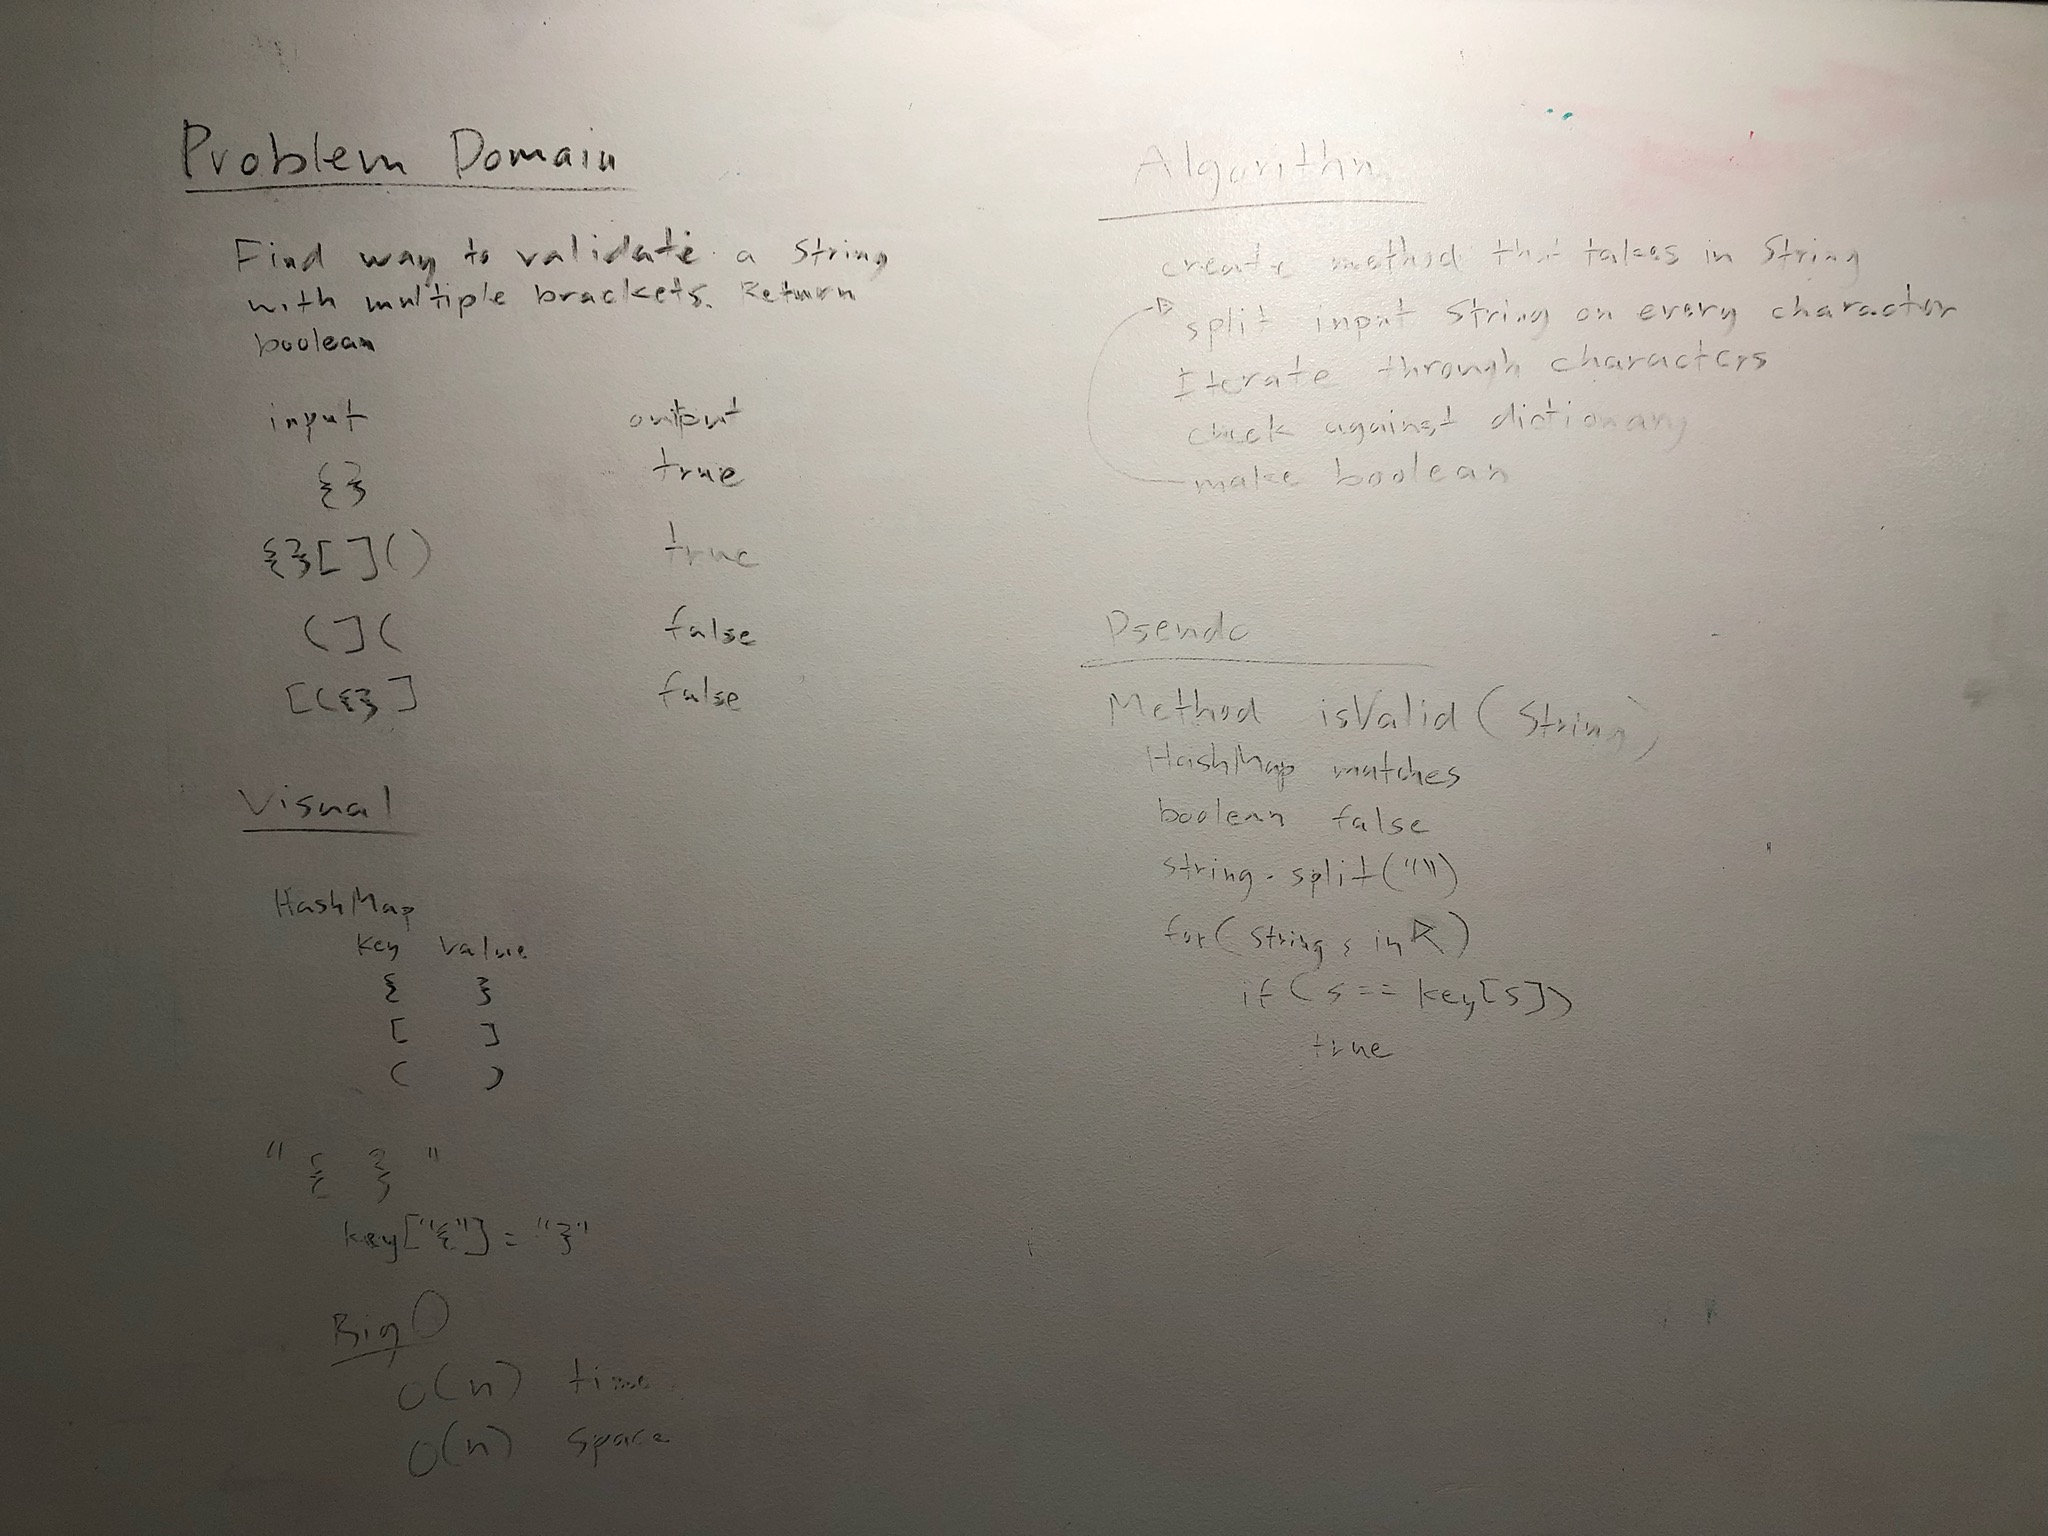 Problem Domain
Find way to validate a String
with multiple brackets. Return
boolean
input output
{} true
{}[]() true
(]( false
[({}] false
Visual
HashMap
key value
{ }
[ ]
( )
" { } "
key["{"] = "}"
Big O
O(n) time
O(n) space
Algorithm
create method that takes in String
split input String on every character
Iterate through characters
check against dictionary
make boolean
Pseudo
Method isValid (String)
HashMap matches
boolean false
string.split("")
for( String s in )
if (s == key[s])
true